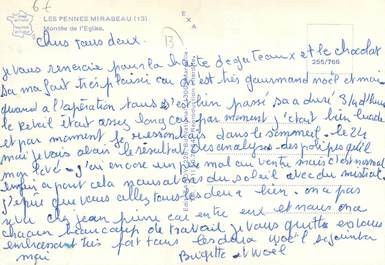 67
LES PENNES MIRABEAU (13)
Montée de l'Eglise,
13
EXA
255/766
Chers tous deux.
je vous remercie pour la boîte de gateaux et le chocolat
sa ma fait très plaisir car on est très gourmand noël et moi
quand a l'opération tous s'est bien passé sa a duré 3/4 d'heure
le réveil était assez long car par moment j'était bien
et par moment je dans le sommeil. le 24
mai je vais avoir le résultat des analyses des polipes qu'il
mon j'ai encore un peu mal au ventre mais c'est normal
a part cela nous avons du soleil avec du mistral
j'espère que vous allez tous les deux bien. on a pas
chez jean pierre car entre eux et nous on a
chacun beaucoup de travail je vous quitte en vous
embrassant très fort tous les deux noël se joint a
moi Brigitte et Noël